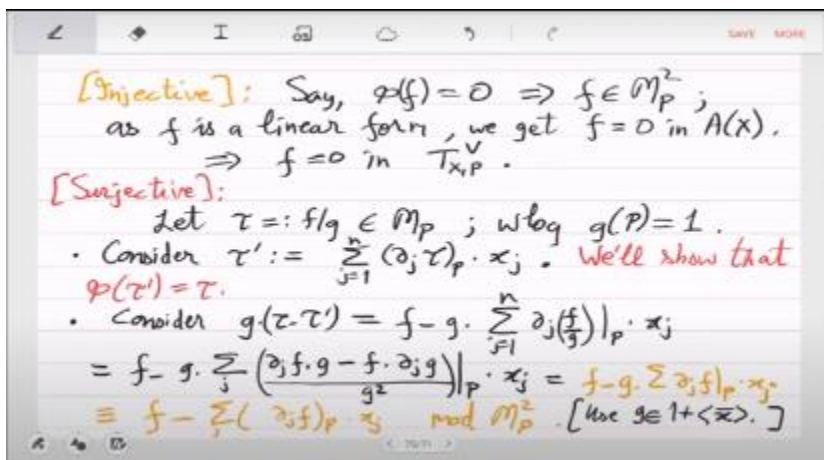 SAVE MORE
[Injective]: Say, φ(f) = 0 ⇒ f ∈ M_P^2 ;
as f is a linear form, we get f = 0 in A(X).
⇒ f = 0 in T_{X,P}^∨ .
[Surjective]:
Let τ =: f/g ∈ M_P ; wlog g(P) = 1 .
· Consider τ' := \sum_{j=1}^{n} (∂_j τ)_P · x_j . We'll show that
φ(τ') = τ.
· Consider g·(τ-τ') = f - g · \sum_{j=1}^{n} ∂_j(f/g)|_P · x_j
= f - g · \sum_j (\frac{∂_j f·g - f·∂_j g}{g^2})|_P · x_j = f - g·Σ ∂_j f|_P · x_j
≡ f - \sum_j (∂_j f)_P · x_j mod M_P^2 . [Use g ∈ 1 + <x̄>. ]